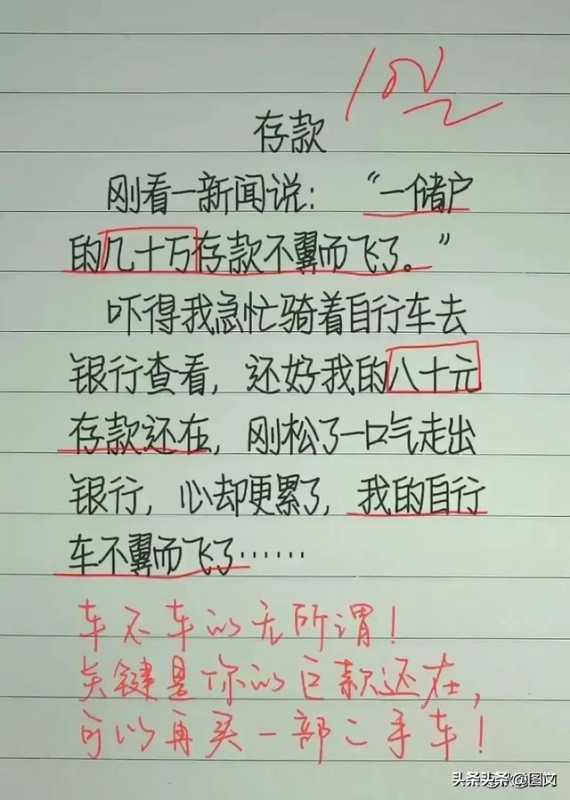 存款
刚看一新闻说：“一储户
的几十万存款不翼而飞了。”
吓得我急忙骑着自行车去
银行查看，还好我的八十元
存款还在，刚松了一口气走出
银行，心却更累了，我的自行
车不翼而飞了……
车不车的无所谓！
关键是你的巨款还在，
可以再买一部二手车！
头条头条@图文